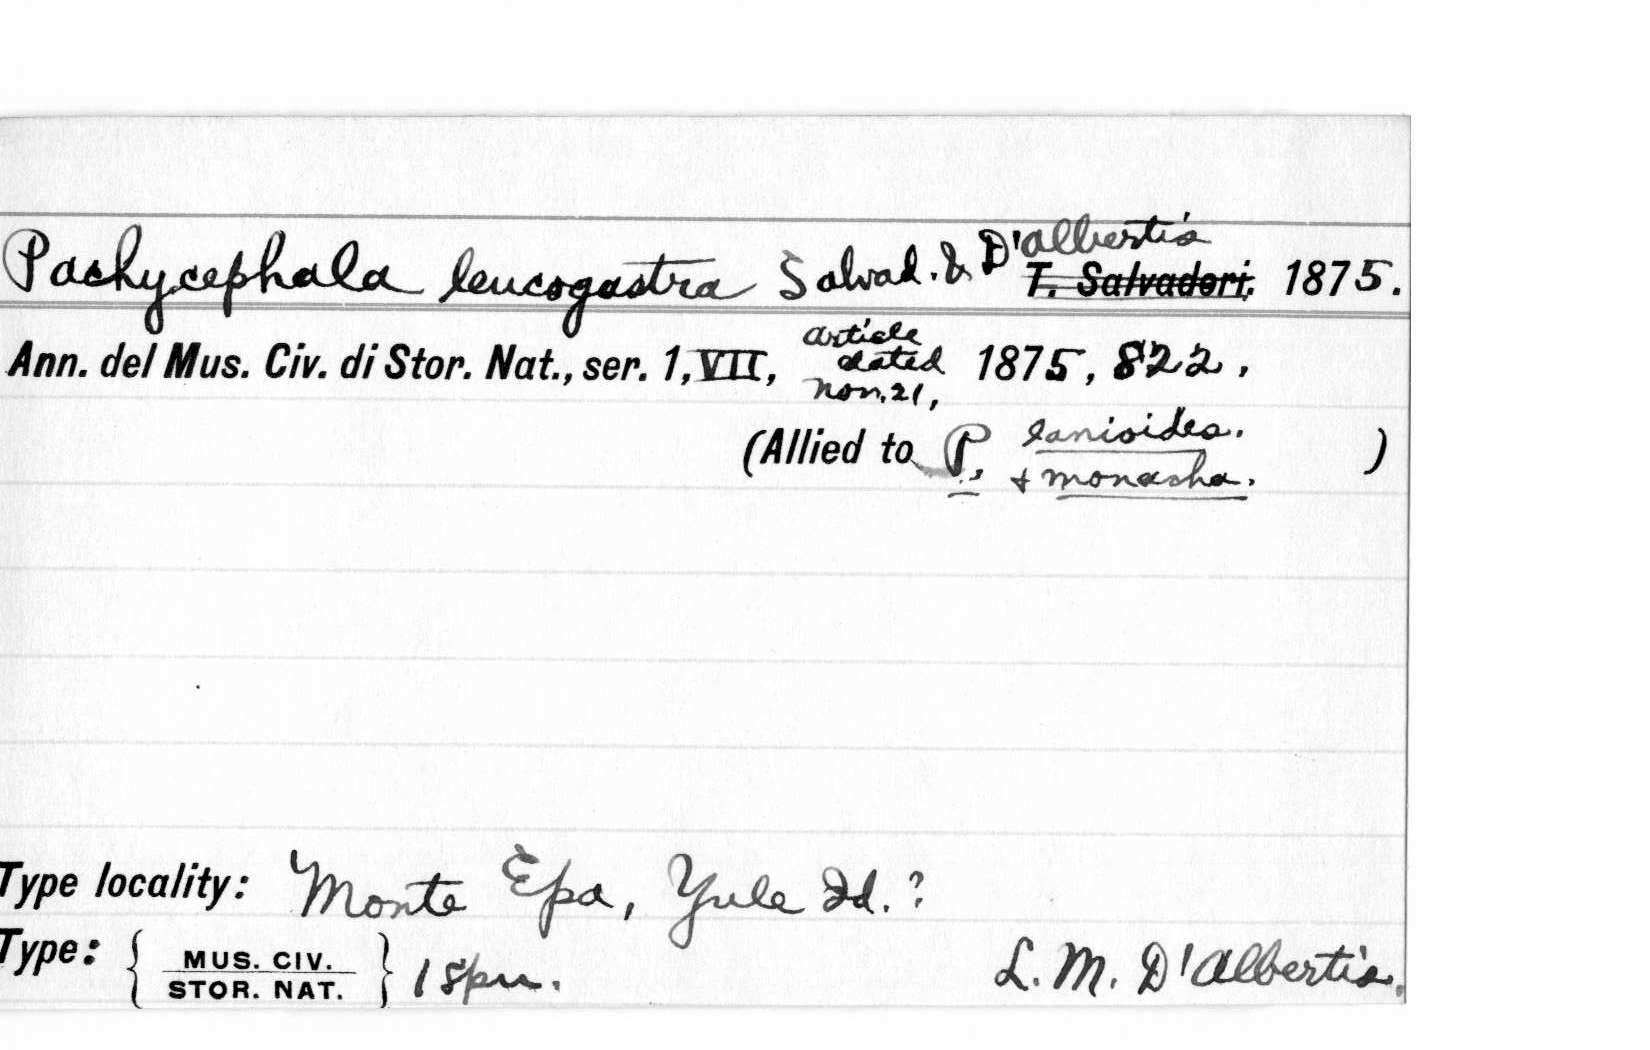 Pachycephala leucogastra Salvad. & D'Albertis T. Salvadori. 1875.
Ann. del Mus. Civ. di Stor. Nat., ser. 1, VII, article dated Nov. 21, 1875, 822,
(Allied to P. lanioides. + monacha. )
Type locality: Monte Epa, Yule Id.?
Type: { MUS. CIV. STOR. NAT. } 1 spm. L. M. D'Albertis.